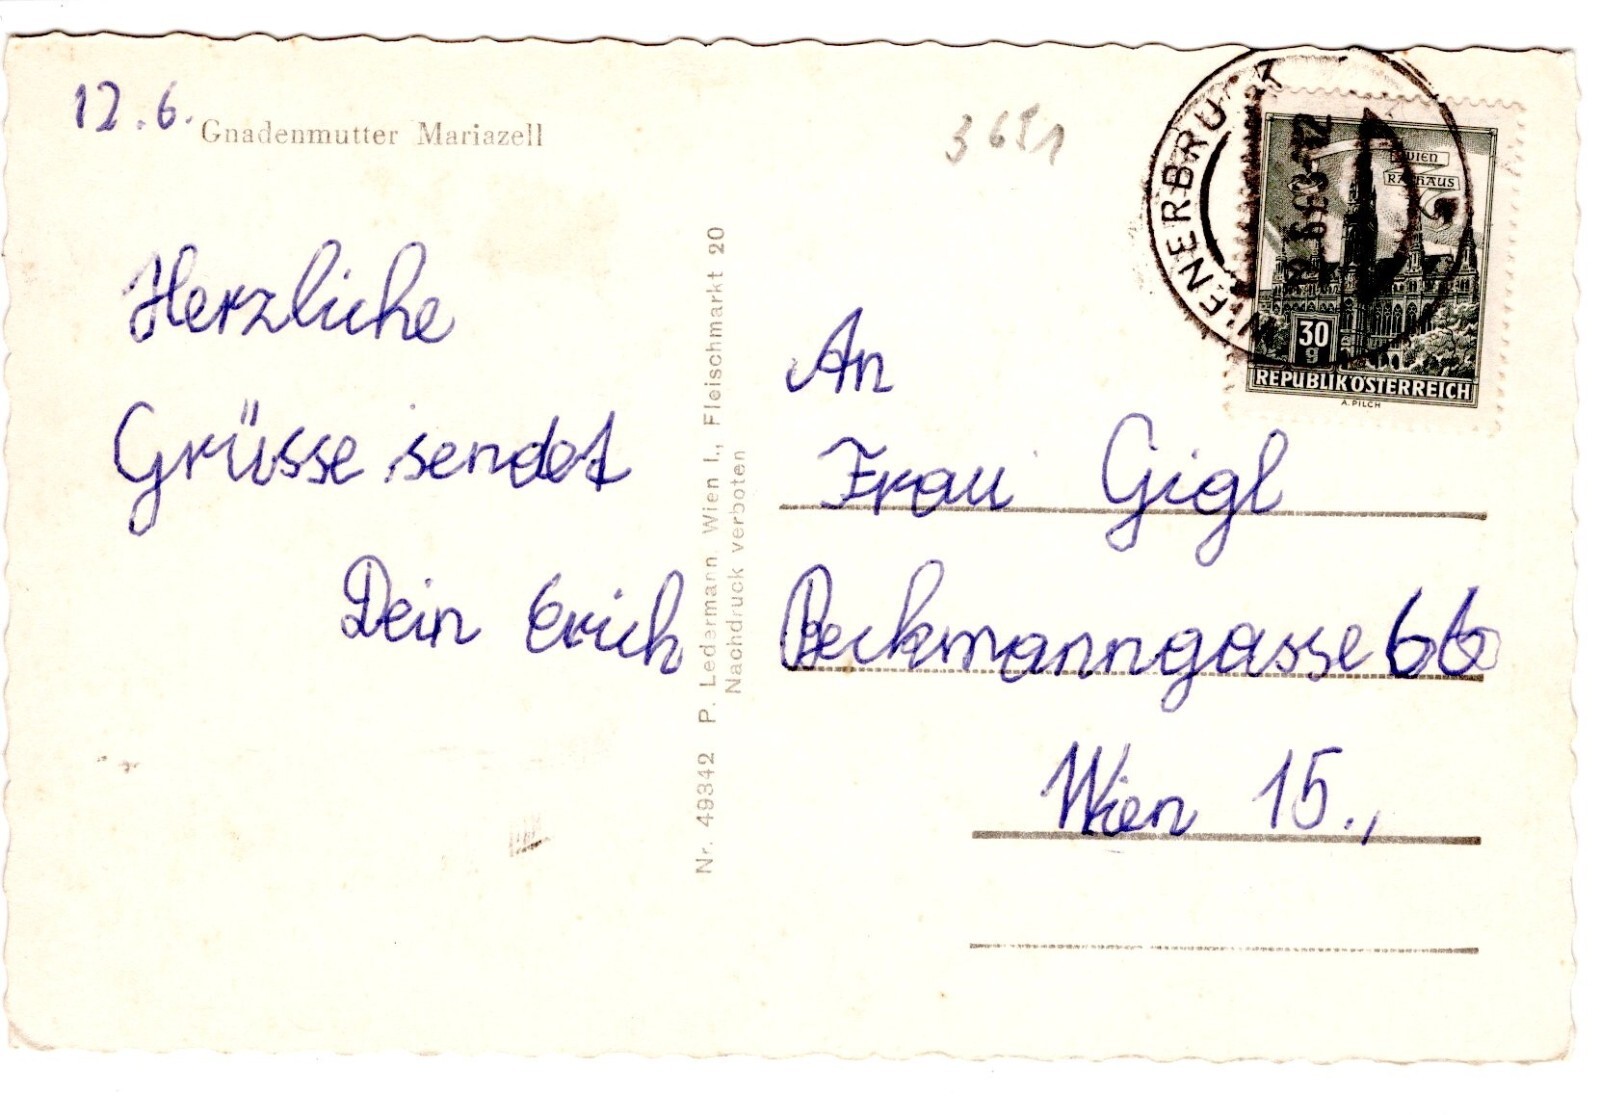 12.6.
Gnadenmutter Mariazell
3651
Herzliche
Grüsse sendet
Dein Erich
Nr. 49342 P. Ledermann, Wien I., Fleischmarkt 20
Nachdruck verboten
WIEN
RATHAUS
30
g
REPUBLIK ÖSTERREICH
A. PILCH
An
Frau Gigl
Beckmanngasse 66
Wien 15.,